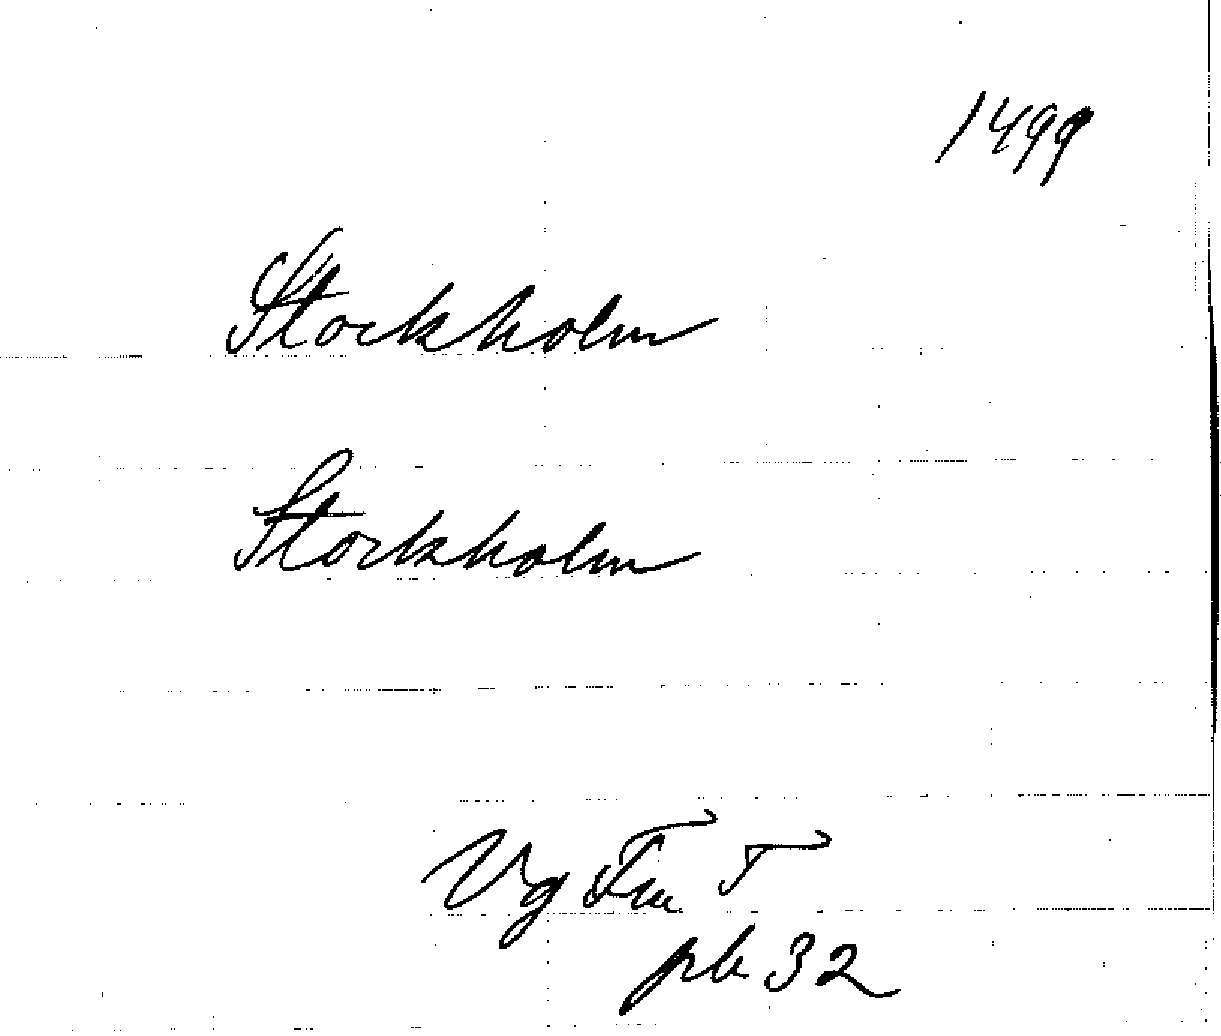 1499
Stockholm
Stockholm
Vg Fm T
pb 32